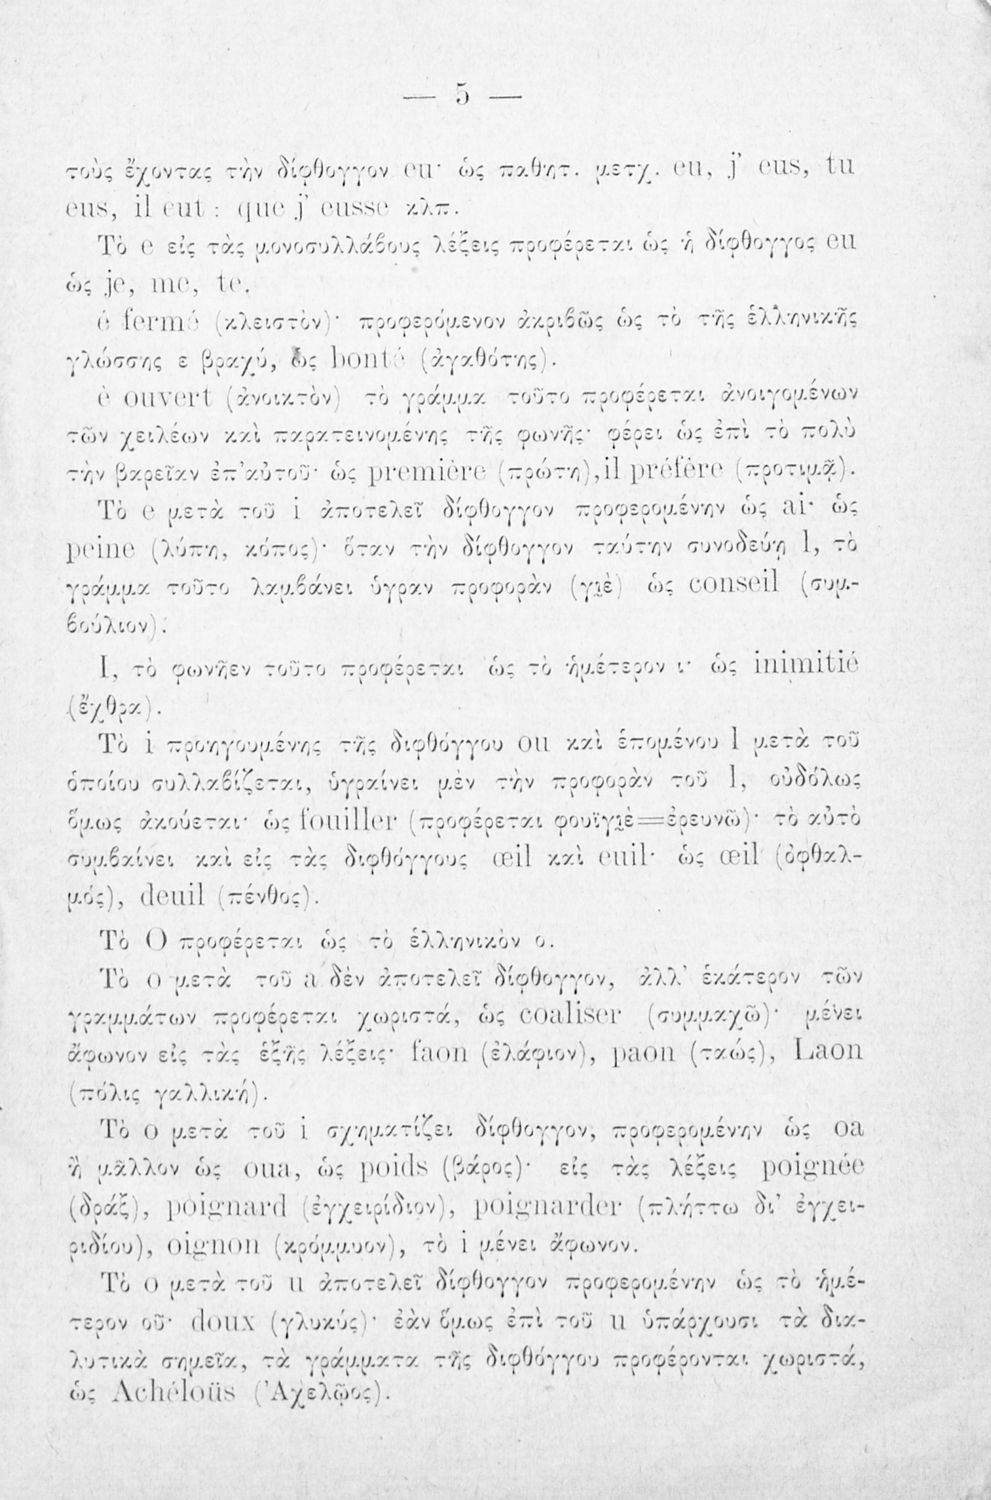 — 5 —
τοὺς ἔχοντας τὴν δίφθογγον eu· ὡς παθητ. μετχ. eu, j' eus, tu
eus, il eut : que j' eusse κλπ.
Τὸ e εἰς τὰς μονοσυλλάβους λέξεις προφέρεται ὡς ἡ δίφθογγος eu
ὡς je, me, te.
é fermé (κλειστὸν)· προφερόμενον ἀκριβῶς ὡς τὸ τῆς ἑλληνικῆς
γλώσσης ε βραχύ, ὡς bonté (ἀγαθότης).
è ouvert (ἀνοικτὸν) τὸ γράμμα τοῦτο προφέρεται ἀνοιγομένων
τῶν χειλέων καὶ παρατεινομένης τῆς φωνῆς· φέρει ὡς ἐπὶ τὸ πολὺ
τὴν βαρεῖαν ἐπ'αὐτοῦ· ὡς première (πρώτη),il préfère (προτιμᾷ).
Τὸ e μετὰ τοῦ i ἀποτελεῖ δίφθογγον προφερομένην ὡς ai· ὡς
peine (λύπη, κόπος)· ὅταν τὴν δίφθογγον ταύτην συνοδεύῃ l, τὸ
γράμμα τοῦτο λαμβάνει ὑγραν προφορὰν (γιὲ) ὡς conseil (συμ-
βούλιον).
I, τὸ φωνῆεν τοῦτο προφέρεται ὡς τὸ ἡμέτερον ι· ὡς inimitié
(ἔχθρα).
Τὸ i προηγουμένης τῆς διφθόγγου ou καὶ ἑπομένου l μετὰ τοῦ
ὁποίου συλλαβίζεται, ὑγραίνει μὲν τὴν προφορὰν τοῦ l, οὐδόλως
ὅμως ἀκούεται· ὡς fouiller (προφέρεται φουϊγιὲ=ἐρευνῶ)· τὸ αὐτὸ
συμβαίνει καὶ εἰς τὰς διφθόγγους œil καὶ euil· ὡς œil (ὀφθαλ-
μός), deuil (πένθος).
Τὸ O προφέρεται ὡς τὸ ἑλληνικὸν ο.
Τὸ o μετὰ τοῦ a δὲν ἀποτελεῖ δίφθογγον, ἀλλ' ἑκάτερον τῶν
γραμμάτων προφέρεται χωριστά, ὡς coaliser (συμμαχῶ)· μένει
ἄφωνον εἰς τὰς ἑξῆς λέξεις· faon (ἐλάφιον), paon (ταώς), Laon
(πόλις γαλλική).
Τὸ o μετὰ τοῦ i σχηματίζει δίφθογγον, προφερομένην ὡς oa
ἢ μᾶλλον ὡς oua, ὡς poids (βάρος)· εἰς τὰς λέξεις poignée
(δράξ), poignard (ἐγχειρίδιον), poignarder (πλήττω δι' ἐγχει-
ριδίου), oignon (κρόμμυον), τὸ i μένει ἄφωνον.
Τὸ o μετὰ τοῦ u ἀποτελεῖ δίφθογγον προφερομένην ὡς τὸ ἡμέ-
τερον οῦ· doux (γλυκύς)· ἐὰν ὅμως ἐπὶ τοῦ u ὑπάρχουσι τὰ δια-
λυτικὰ σημεῖα, τὰ γράμματα τῆς διφθόγγου προφέρονται χωριστά,
ὡς Achéloüs (Ἀχελῷος).